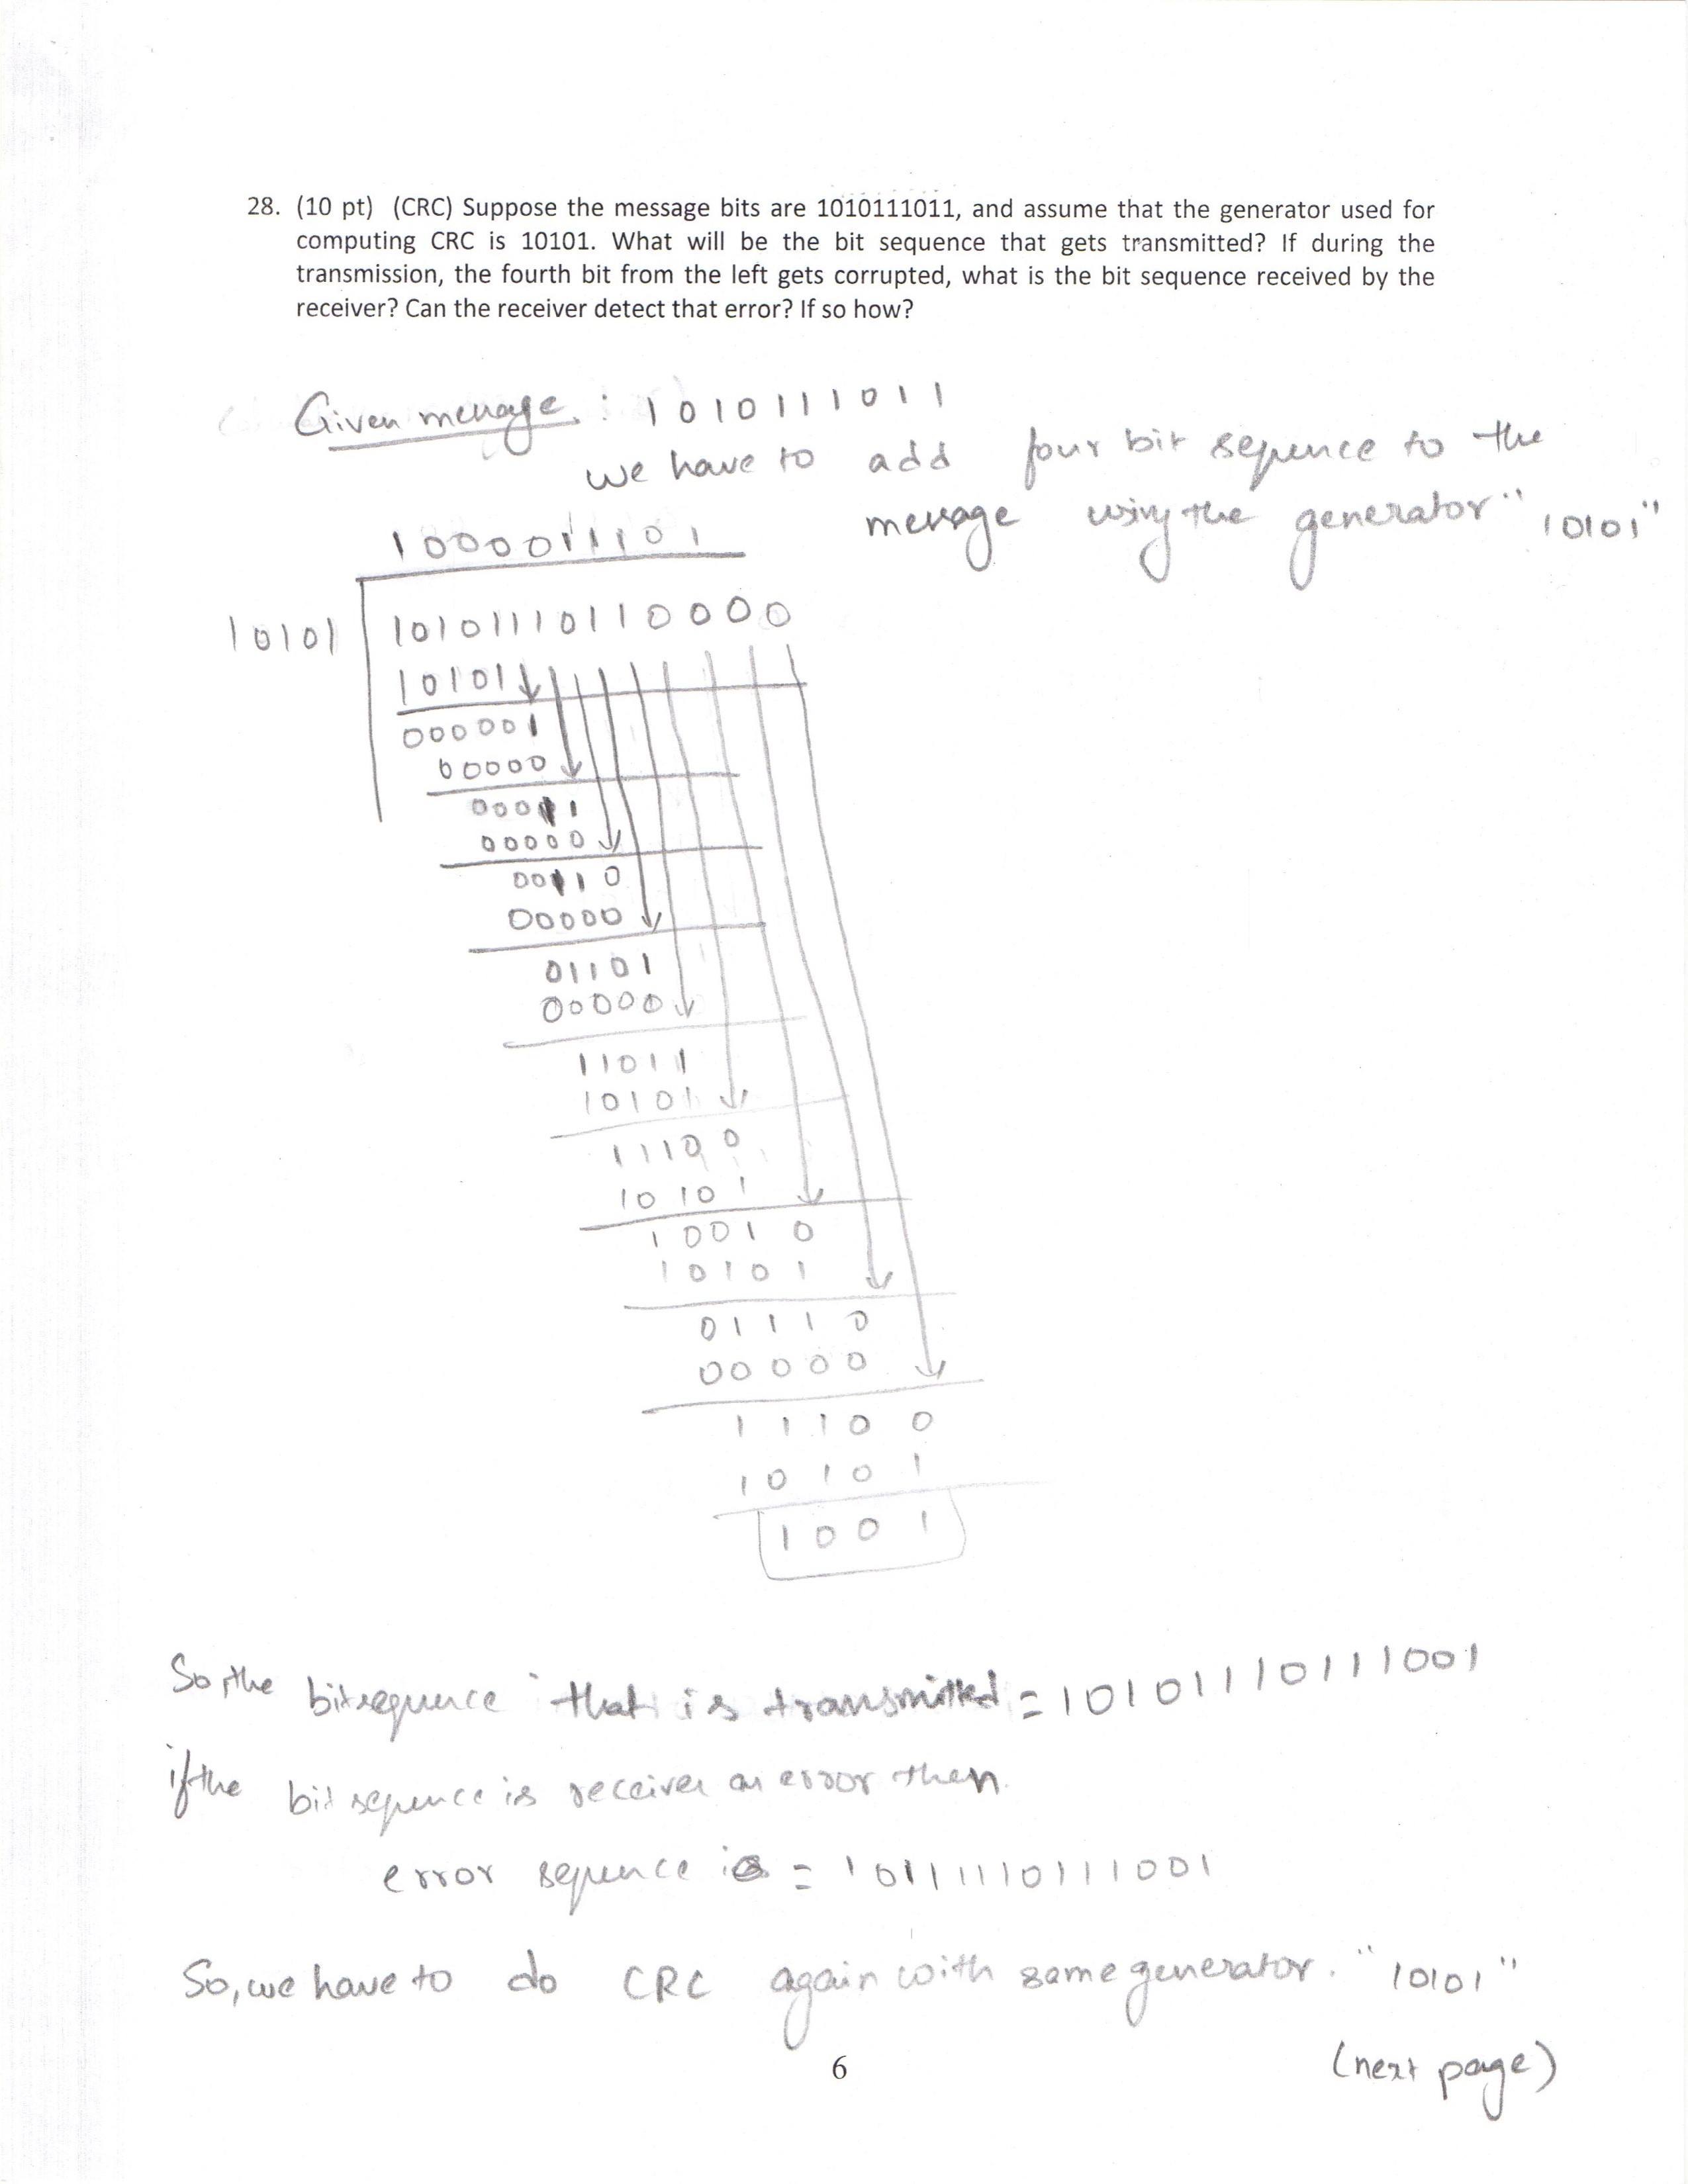 28. (10 pt) (CRC) Suppose the message bits are 1010111011, and assume that the generator used for
computing CRC is 10101. What will be the bit sequence that gets transmitted? If during the
transmission, the fourth bit from the left gets corrupted, what is the bit sequence received by the
receiver? Can the receiver detect that error? If so how?
Given message : 1010111011
we have to add four bit sequence to the
message using the generator "10101"
1000011101
10101 10101110110000
10101
000001
00000
00011
00000
00110
00000
01101
00000
11011
10101
11100
10101
10010
10101
01110
00000
11100
10101
1001
So, the bit sequence that is transmitted = 10101110111001
if the bit sequence is receiver an error then.
error sequence is = 10111110111001
So, we have to do CRC again with same generator. "10101"
6
(next page)